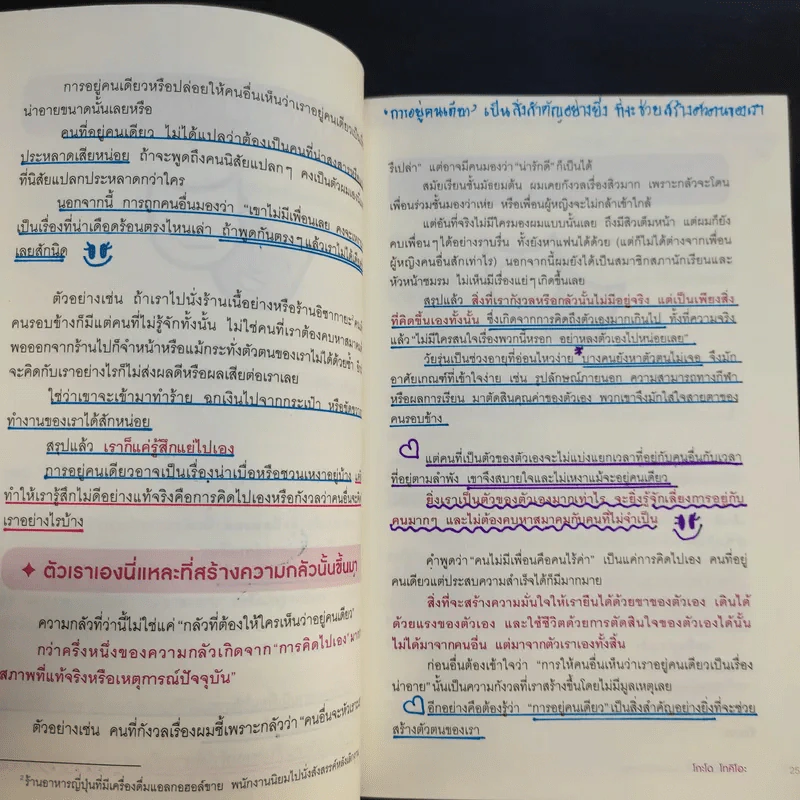 การอยู่คนเดียวหรือปล่อยให้คนอื่นเห็นว่าเราอยู่คนเดียวเป็นเรื่อง
น่าอายขนาดนั้นเลยหรือ
คนที่อยู่คนเดียว ไม่ได้แปลว่าต้องเป็นคนที่น่าสงสาร
ประหลาดเสียหน่อย ถ้าจะพูดถึงคนนิสัยแปลกๆ คงเป็นตัวผมเอง
ที่นิสัยแปลกประหลาดกว่าใคร
นอกจากนี้ การถูกคนอื่นมองว่า "เขาไม่มีเพื่อนเลย คงจะ
เป็นเรื่องที่น่าเดือดร้อนตรงไหนเล่า ถ้าพูดกันตรงๆ แล้วเราไม่ได้
เลยสักนิด
ตัวอย่างเช่น ถ้าเราไปนั่งร้านเนื้อย่างหรือร้านอิซากายะ²
คนรอบข้างก็มีแต่คนที่ไม่รู้จักทั้งนั้น ไม่ใช่คนที่เราต้องคบหาสมาคม
พอออกจากร้านไปก็จำหน้าหรือแม้กระทั่งตัวตนของเราไม่ได้ด้วยซ้ำ
จะคิดกับเราอย่างไรก็ไม่ส่งผลดีหรือผลเสียต่อเราเลย
ใช่ว่าเขาจะเข้ามาทำร้าย ฉกเงินไปจากกระเป๋า หรือขัดขวาง
ทำงานของเราได้สักหน่อย
สรุปแล้ว เราก็แค่รู้สึกแย่ไปเอง
การอยู่คนเดียวอาจเป็นเรื่องน่าเบื่อหรือชวนเหงาอยู่บ้าง แต่
ทำให้เรารู้สึกไม่ดีอย่างแท้จริงคือการคิดไปเองหรือกังวลว่าคนอื่นจะคิด
เราอย่างไรบ้าง
✦ ตัวเราเองนี่แหละที่สร้างความกลัวนั้นขึ้นมา
ความกลัวที่ว่านี้ไม่ใช่แค่ "กลัวที่ต้องให้ใครเห็นว่าอยู่คนเดียว"
กว่าครึ่งหนึ่งของความกลัวเกิดจาก "การคิดไปเอง"
สภาพที่แท้จริงหรือเหตุการณ์ปัจจุบัน"
ตัวอย่างเช่น คนที่กังวลเรื่องผมชี้เพราะกลัวว่า "คนอื่นจะหัวเราะ
²ร้านอาหารญี่ปุ่นที่มีเครื่องดื่มแอลกอฮอล์ขาย พนักงานนิยมไปนั่งสังสรรค์หลังเลิกงาน
'การอยู่คนเดียว' เป็นสิ่งสำคัญอย่างยิ่ง ที่จะช่วยสร้างตัวตนของเรา
รึเปล่า" แต่อาจมีคนมองว่า "น่ารักดี" ก็เป็นได้
สมัยเรียนชั้นมัธยมต้น ผมเคยกังวลเรื่องสิวมาก เพราะกลัวจะโดน
เพื่อนร่วมชั้นมองว่าเห่ย หรือเพื่อนผู้หญิงจะไม่กล้าเข้าใกล้
แต่อันที่จริงไม่มีใครมองผมแบบนั้นเลย ถึงมีสิวเต็มหน้า แต่ผมก็ยัง
คบเพื่อนๆ ได้อย่างราบรื่น ทั้งยังหาแฟนได้ด้วย (แต่ก็ไม่ได้ต่างจากเพื่อน
ผู้หญิงคนอื่นสักเท่าไร) นอกจากนี้ผมยังได้เป็นสมาชิกสภานักเรียนและ
หัวหน้าชมรม ไม่เห็นมีเรื่องแย่ๆ เกิดขึ้นเลย
สรุปแล้ว สิ่งที่เรากังวลหรือกลัวนั้นไม่มีอยู่จริง แต่เป็นเพียงสิ่ง
ที่คิดขึ้นเองทั้งนั้น ซึ่งเกิดจากการคิดถึงตัวเองมากเกินไป ทั้งที่ความจริง
แล้ว "ไม่มีใครสนใจเรื่องพวกนี้หรอก อย่าหลงตัวเองไปหน่อยเลย"
วัยรุ่นเป็นช่วงอายุที่อ่อนไหวง่าย บางคนยังหาตัวตนไม่เจอ จึงมัก
อาศัยเกณฑ์ที่เข้าใจง่าย เช่น รูปลักษณ์ภายนอก ความสามารถทางกีฬา
หรือผลการเรียน มาตัดสินคุณค่าของตัวเอง พวกเขาจึงมักใส่ใจสายตาของ
คนรอบข้าง
แต่คนที่เป็นตัวของตัวเองจะไม่แบ่งแยกเวลาที่อยู่กับคนอื่นกับเวลา
ที่อยู่ตามลำพัง เขาจึงสบายใจและไม่เหงาแม้จะอยู่คนเดียว
ยิ่งเราเป็นตัวของตัวเองมากเท่าไร จะยิ่งรู้จักเลี่ยงการอยู่กับ
คนมากๆ และไม่ต้องคบหาสมาคมกับคนที่ไม่จำเป็น
คำพูดว่า "คนไม่มีเพื่อนคือคนไร้ค่า" เป็นแค่การคิดไปเอง คนที่อยู่
คนเดียวแต่ประสบความสำเร็จได้ก็มีมากมาย
สิ่งที่จะสร้างความมั่นใจให้เรายืนได้ด้วยขาของตัวเอง เดินได้
ด้วยแรงของตัวเอง และใช้ชีวิตด้วยการตัดสินใจของตัวเองได้นั้น
ไม่ได้มาจากคนอื่น แต่มาจากตัวเราเองทั้งสิ้น
ก่อนอื่นต้องเข้าใจว่า "การให้คนอื่นเห็นว่าเราอยู่คนเดียวเป็นเรื่อง
น่าอาย" นั้นเป็นความกังวลที่เราสร้างขึ้นโดยไม่มีมูลเหตุเลย
อีกอย่างคือต้องรู้ว่า "การอยู่คนเดียว" เป็นสิ่งสำคัญอย่างยิ่งที่จะช่วย
สร้างตัวตนของเรา
โกะโด โทคิโอะ 25